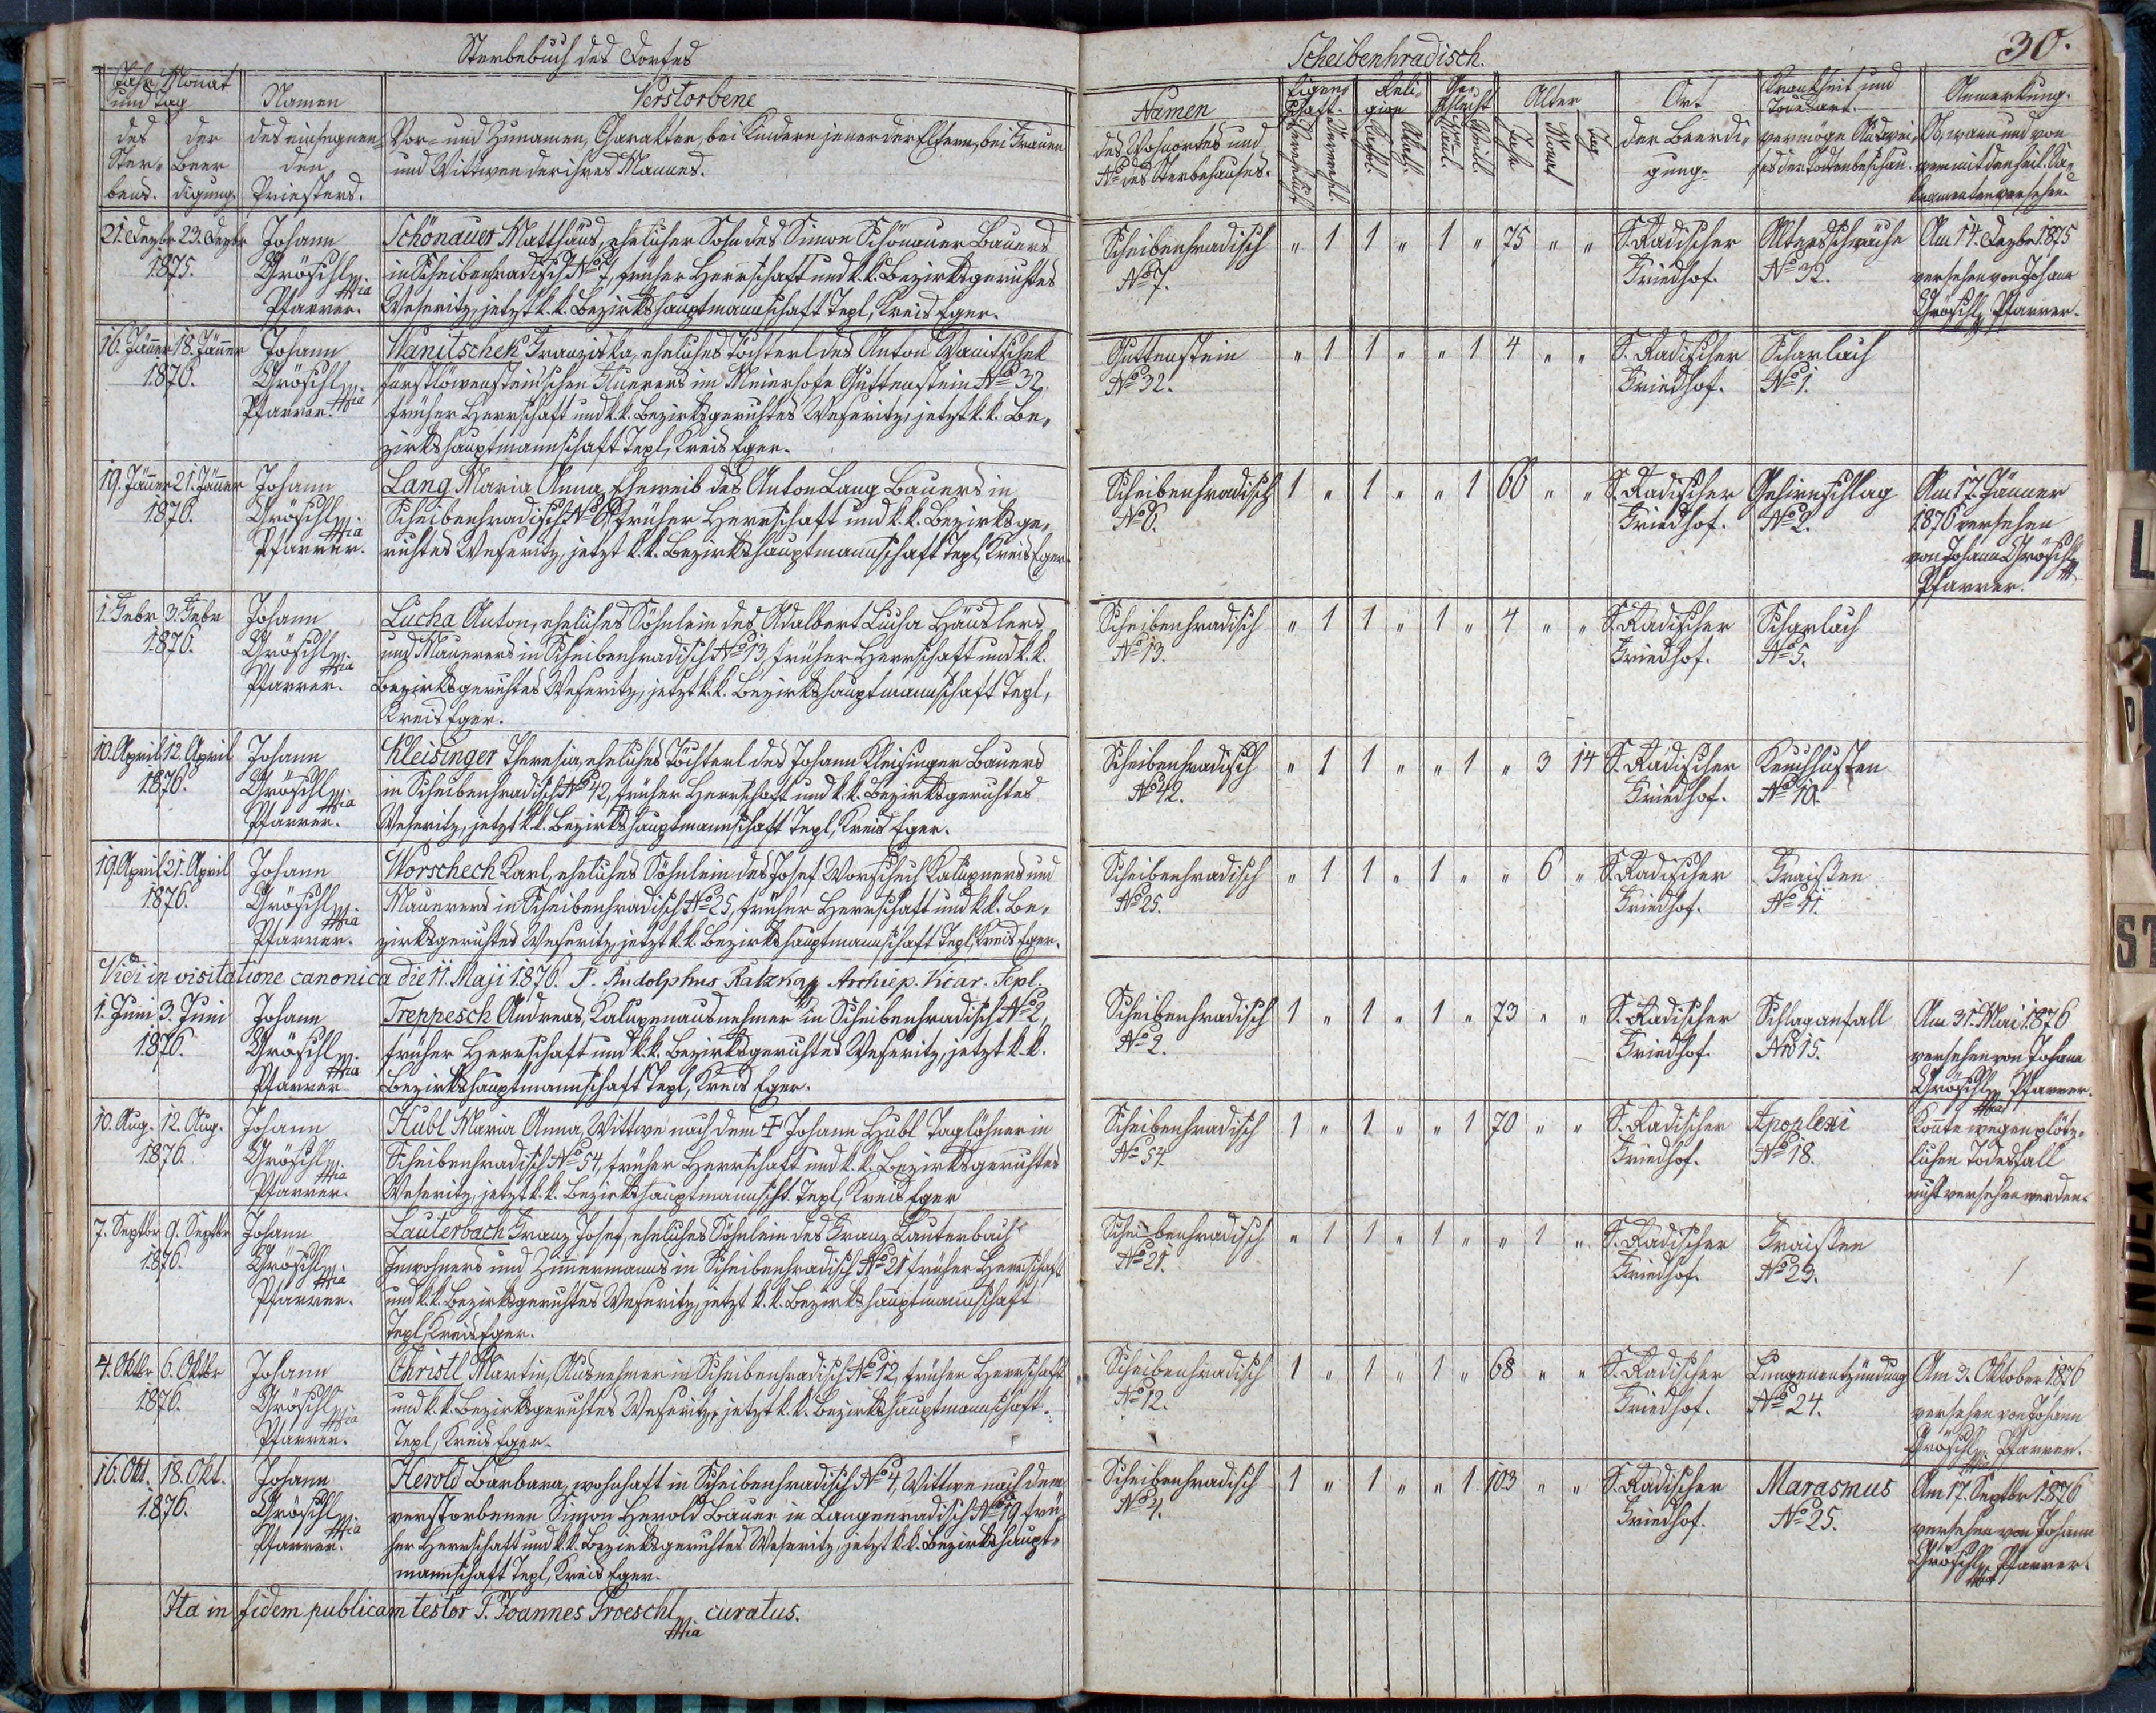 Sterbebuch des Dorfes
Scheibenhradisch.
30.
Jahr, Monat und Tag
des Sterbens.
der Beerdigung.
Namen des einsegnenden Priesters.
Verstorbene
Vor- und Zunamen, Charakter, bei Kindern jener der Eltern, bei Frauen
und Wittwen der ihres Mannes.
Namen des Wohnortes und
No des Sterbehauses.
Eigenschaft.
Verehelicht
Unverehel.
Religion
Kathl.
Akath.
Geschlecht
Mänl.
Weibl.
Alter
Jahr
Monat
Tag
Ort der Beerdigung
Krankheit und Todesart.
vermöge Ausweises der Todtenbeschau.
Anmerkung.
Ob, wann und von
wem mit den heil. Sakramenten versehen.
21. Dezbr 23. Dezbr
1875.
Johann
Gröschl mpia
Pfarrer.
Schönauer Matthäus, ehelicher Sohn des Simon Schönauer Bauers
in Scheibenhradisch No 7, früher Herrschaft und k.k. Bezirksgerichtes
Weseritz, jetzt k.k. Bezirkshauptmannschaft Tepl, Kreis Eger.
Scheibenhradisch
No 7.
" 1 1 " 1 " 75 " "
S. Radischer
Friedhof.
Altersschwäche
No 32.
Am 14. Dezbr 1875
versehen von Johann
Gröschl Pfarrer.
16. Jänner 18. Jänner
1876.
Johann
Gröschl mpia
Pfarrer.
Wanitschek Franziska, eheliches Töchterl des Anton Wanitschek
fürstlöwenstein'schen Maierers im Meierhofe Guttenstein No 32,
früher Herrschaft und k.k. Bezirksgerichtes Weseritz, jetzt k.k. Be-
zirkshauptmannschaft Tepl, Kreis Eger.
Guttenstein
No 32.
" 1 1 " " 1 4 " "
S. Radischer
Friedhof.
Scharlach
No 1.
19. Jänner 21. Jänner
1876.
Johann
Gröschl mpia
Pfarrer.
Lang Maria Anna, Eheweib des Anton Lang Bauers in
Scheibenhradisch No 6, früher Herrschaft und k.k. Bezirksge-
richtes Weseritz, jetzt k.k. Bezirkshauptmannschaft Tepl, Kreis Eger.
Scheibenhradisch
No 6.
1 " 1 " " 1 66 " "
S. Radischer
Friedhof.
Gehirnschlag
No 2.
Am 17. Jänner
1876 versehen
von Johann Gröschl
Pfarrer.
1. Febr. 3. Febr
1876.
Johann
Gröschl mpia
Pfarrer.
Lucha Anton, eheliches Söhnlein des Adalbert Lucha Häuslers
und Maurers in Scheibenhradisch No 13, früher Herrschaft und k.k.
Bezirksgerichtes Weseritz, jetzt k.k. Bezirkshauptmannschaft Tepl,
Kreis Eger.
Scheibenhradisch
No 13.
" 1 1 " 1 " 4 " "
S. Radischer
Friedhof.
Scharlach
No 5.
10. April 12. April
1876.
Johann
Gröschl mpia
Pfarrer.
Kleisinger Theresia, eheliches Töchterl des Johann Kleisinger Bauers
in Scheibenhradisch No 42, früher Herrschaft und k.k. Bezirksgerichtes
Weseritz, jetzt k.k. Bezirkshauptmannschaft Tepl, Kreis Eger.
Scheibenhradisch
No 42.
" 1 1 " " 1 " 3 14
S. Radischer
Friedhof.
Keuchhusten
No 10.
19. April 21. April
1876.
Johann
Gröschl mpia
Pfarrer.
Worschech Karl, eheliches Söhnlein des Josef Worschech Kaluppners und
Mauerers in Scheibenhradisch No 25, früher Herrschaft und k.k. Be-
zirksgerichtes Weseritz, jetzt k.k. Bezirkshauptmannschaft Tepl, Kreis Eger.
Scheibenhradisch
No 25.
" 1 1 " 1 " " 6 "
S. Radischer
Friedhof.
Fraisen
No 11.
Vidi in visitatione canonica die 11. Maji 1876. P. Rudolphus Archiep. Vicar. Tepl.
1. Juni 3. Juni
1876.
Johann
Gröschl mpia
Pfarrer
Treppesch Andreas, Kalupenausnehmer in Scheibenhradisch No 2,
früher Herrschaft und k.k. Bezirksgerichtes Weseritz, jetzt k.k.
Bezirkshauptmannschaft Tepl, Kreis Eger.
Scheibenhradisch
No 2.
1 " 1 " 1 " 73 " "
S. Radischer
Friedhof.
Schlaganfall
Nro 15.
Am 31. Mai 1876
versehen von Johann
Gröschl Pfarrer.
10. Aug. 12. Aug.
1876.
Johann
Gröschl mpia
Pfarrer.
Hubl Maria Anna, Wittwe nach dem † Johann Hubl Taglöhner in
Scheibenhradisch No 54, früher Herrschaft und k.k. Bezirksgerichtes
Weseritz, jetzt k.k. Bezirkshauptmannscht. Tepl, Kreis Eger
Scheibenhradisch
No 54.
1 " 1 " " 1 70 " "
S. Radischer
Friedhof.
Apoplexi
No 18.
Konnte wegen plötz-
lichen Todesfall
nicht versehen werden.
7. Septbr 9. Septbr
1876.
Johann
Gröschl mpia
Pfarrer.
Lauterbach Franz Josef, eheliches Söhnlein des Franz Lauterbach
Inwohners und Zimmermanns in Scheibenhradisch No 21 früher Herrschaft
und k.k. Bezirksgerichtes Weseritz, jetzt k.k. Bezirkshauptmannschaft
Tepl, Kreis Eger.
Scheibenhradisch
No 21.
" 1 1 " 1 " " 1 "
S. Radischer
Friedhof.
Fraisen
No 23.
4. Oktbr 6. Oktbr
1876.
Johann
Gröschl mpia
Pfarrer.
Christl Martin, Ausnehmer in Scheibenhradisch No 12, früher Herrschaft
und k.k. Bezirksgerichtes Weseritz, jetzt k.k. Bezirkshauptmannschaft
Tepl, Kreis Eger.
Scheibenhradisch
No 12.
1 " 1 " 1 " 68 " "
S. Radischer
Friedhof.
Lungenentzündung
No 24.
Am 3. Oktober 1876
versehen von Johann
Gröschl Pfarrer.
16. Okt. 18. Okt.
1876.
Johann
Gröschl mpia
Pfarrer.
Herold Barbara, wohnhaft in Scheibenhradisch No 4, Wittwe nach dem
verstorbenen Simon Herold Bauer in Langenradisch No 19 frü-
her Herrschaft und k.k. Bezirksgerichtes Weseritz, jetzt k.k. Bezirkshaupt-
mannschaft Tepl, Kreis Eger.
Scheibenhradisch
No 4.
1 " 1 " " 1 103 " "
S. Radischer
Friedhof.
Marasmus
No 25.
Am 17. Septbr 1876
versehen von Johann
Gröschl Pfarrer.
Ita in fidem publicam testor P. Joannes Groeschl mpia curatus.
INDEX